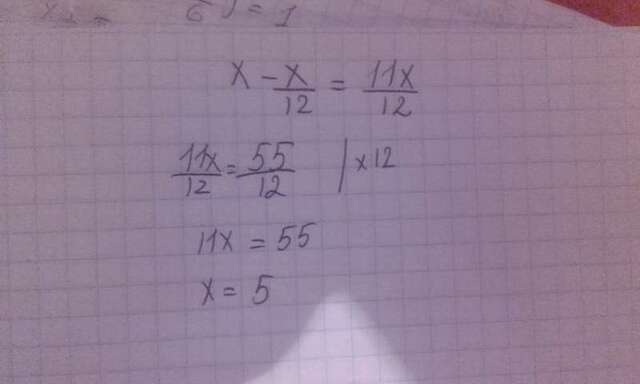 x - x/12 = 11x/12
11x/12 = 55/12 | x12
11x = 55
x = 5